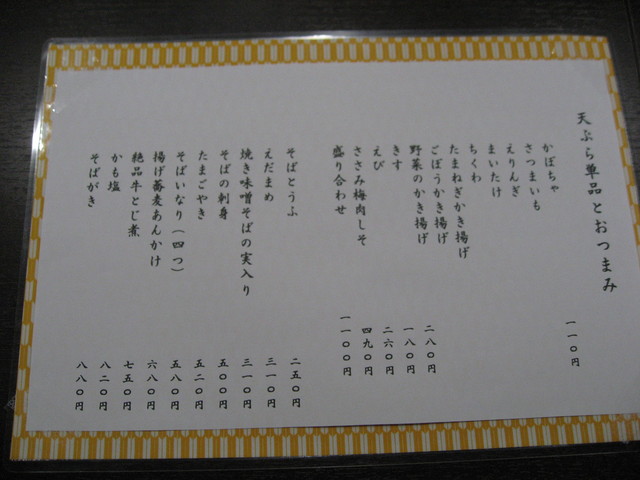 天ぷら単品とおつまみ
かぼちゃ 一一〇円
さつまいも
えりんぎ
まいたけ
ちくわ
たまねぎかき揚げ
ごぼうかき揚げ
野菜のかき揚げ 二八〇円
きす 一八〇円
えび 二六〇円
ささみ梅肉しそ 四九〇円
盛り合わせ 一一〇〇円
そばとうふ 二五〇円
えだまめ 三一〇円
焼き味噌そばの実入り 三一〇円
そばの刺身 五〇〇円
たまごやき 五二〇円
そばいなり（四つ） 五八〇円
揚げ蕎麦あんかけ 六八〇円
絶品牛とじ煮 七五〇円
かも塩 八二〇円
そばがき 八八〇円